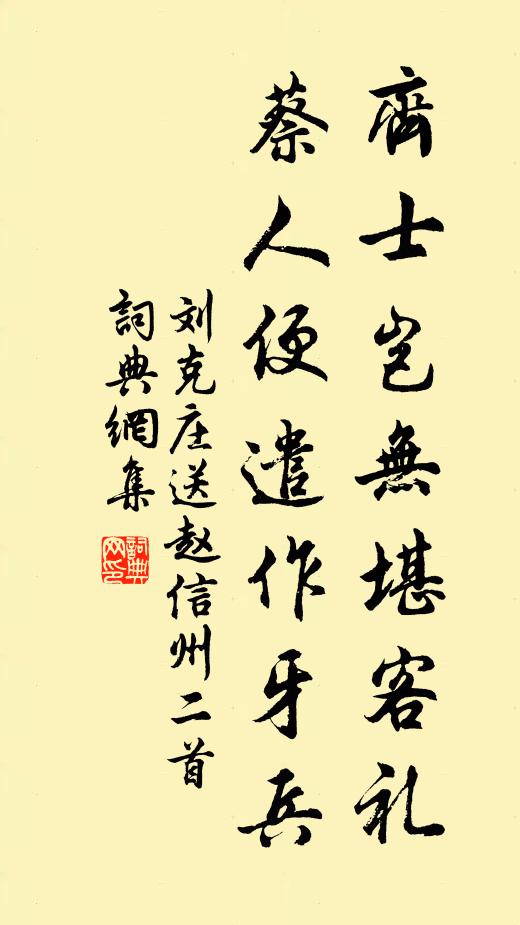 齊士岂無堪客礼
蔡人便遣作牙兵
刘克庄送赵信州二首
詞典網集
詞典网印